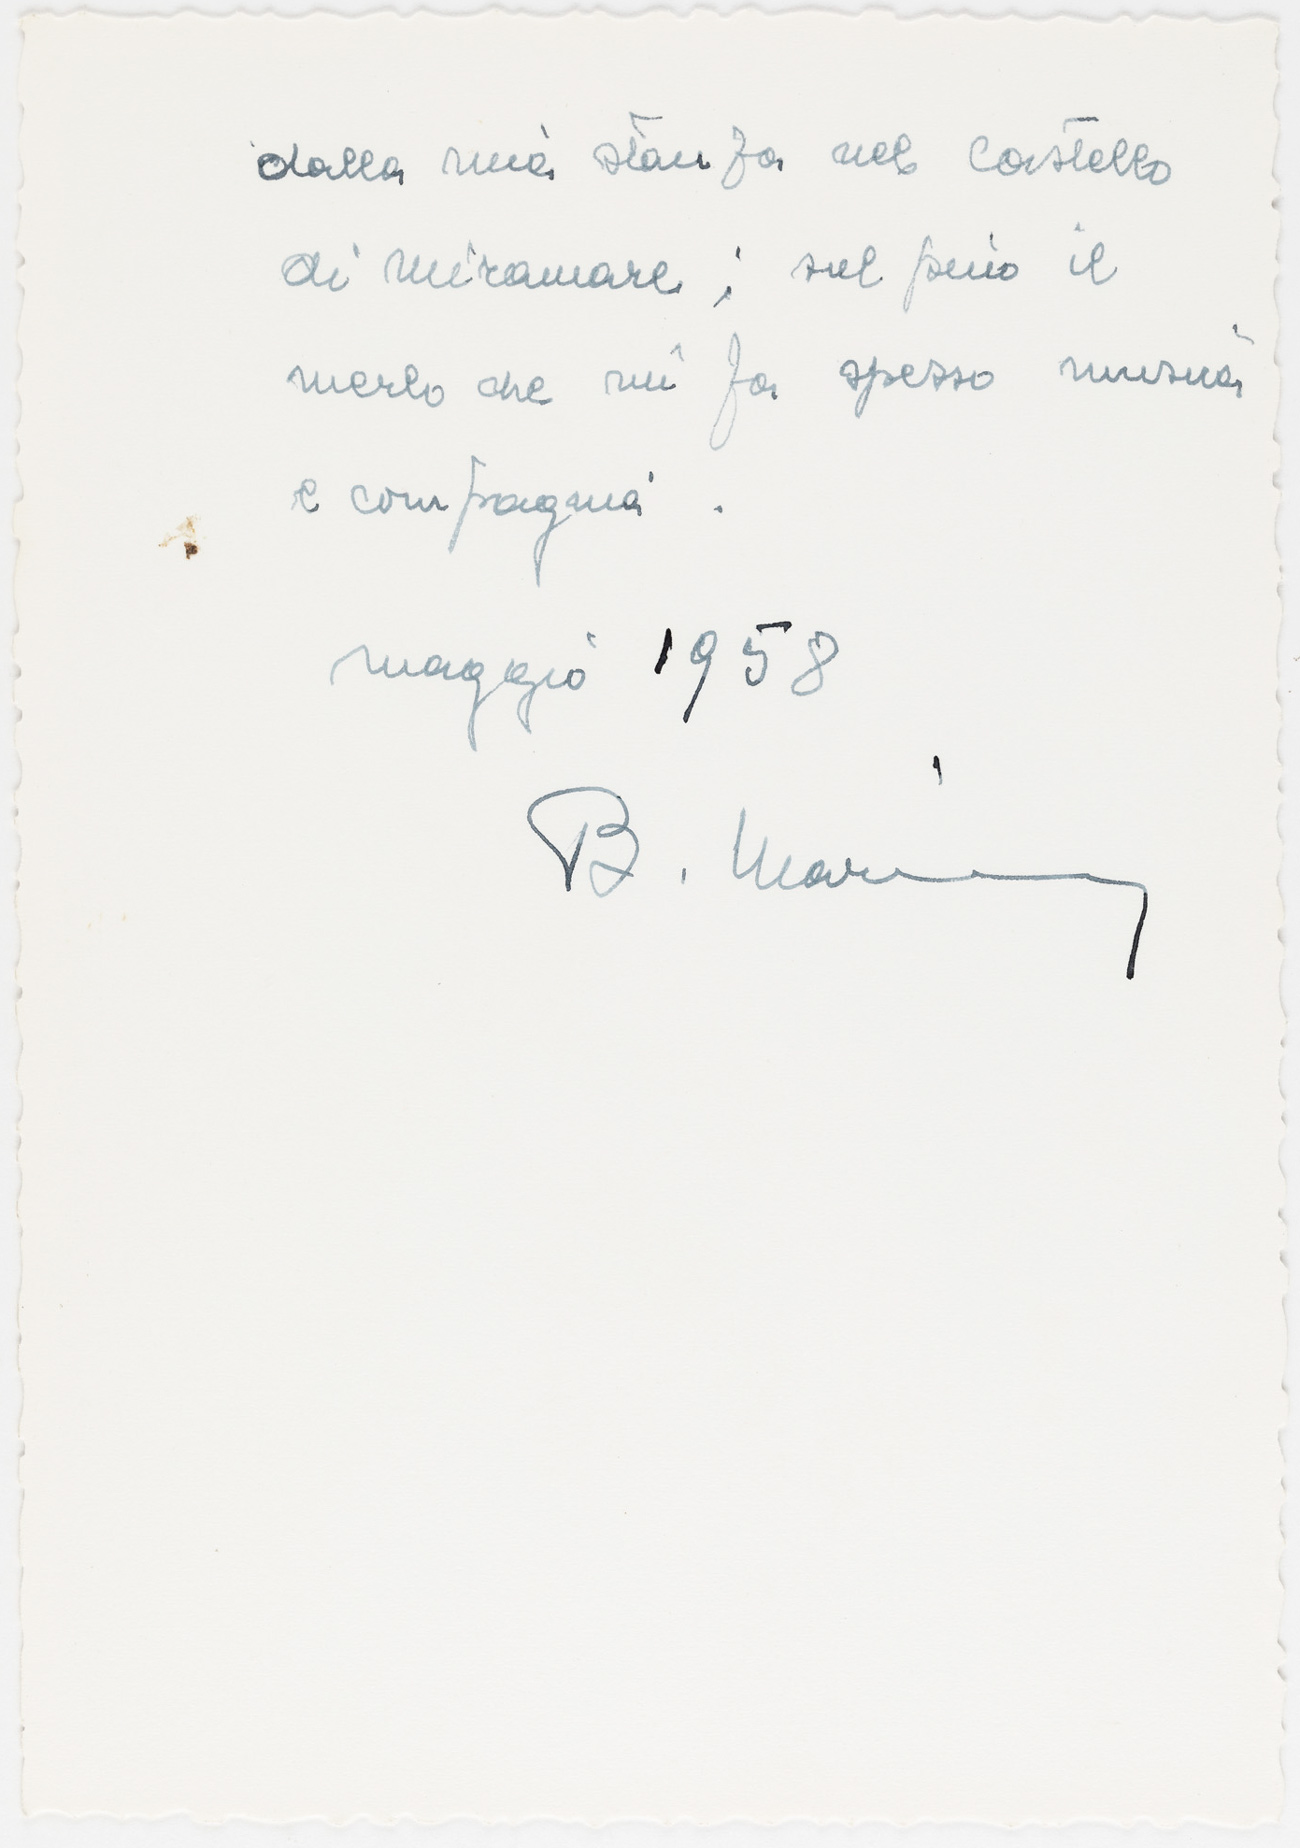 dalla mia stanza nel castello
di Miramare; sul pino il
merlo che mi fa spesso musica
e compagnia.
maggio 1958
B.